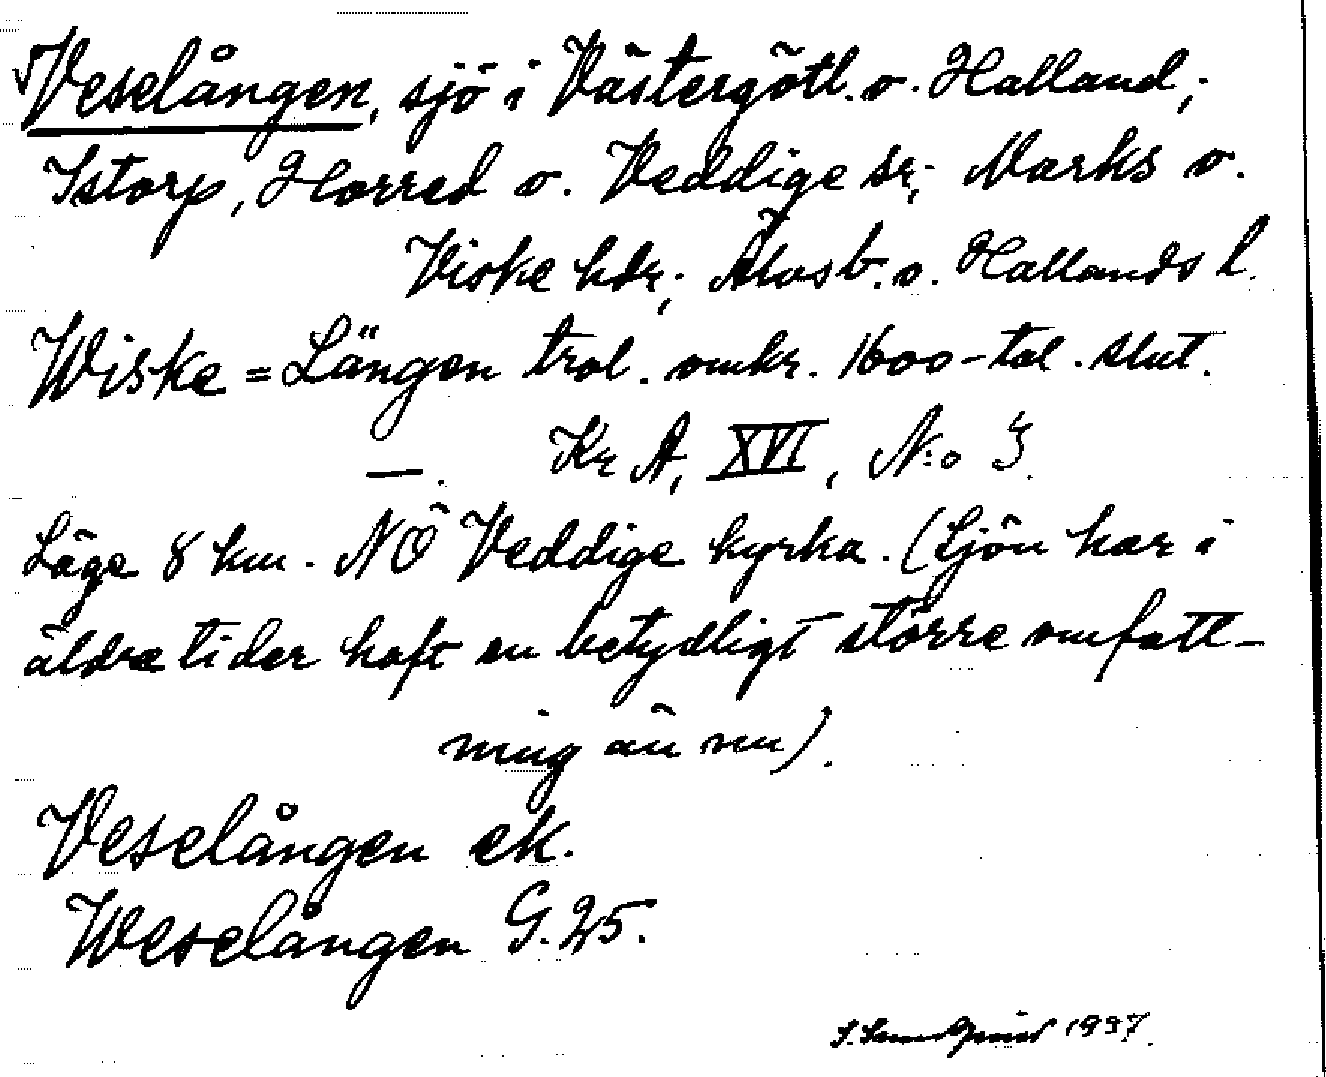 √Veselången, sjö i Västergötl. o. Halland;
Istorp, Horred o. Veddige sr; Marks o.
Viske hdr; Älvsb. o. Hallands l.
Wiske = Längen trol. omkr. 1600-tal. slut.
—. Kr A, XVI, N:o 3.
Läge 8 km. NÖ Veddige kyrka. (Sjön har i
äldre tider haft en betydligt större omfatt-
ning än nu).
Veselången ek.
Weselången G. 25.
1937.